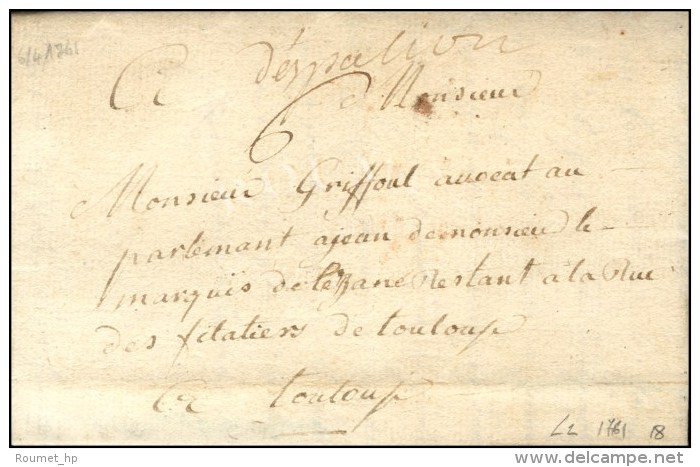 6/4/1761
déspalion
6
A Monsieur
Monsieur Griffoul avocat au
parlemant ajean de monsieu le
marquis de lezzane Restant a la Rue
des filatiers de toulouse
A toulouse
LL 1761 18
Roumet_hp
delcampe.net